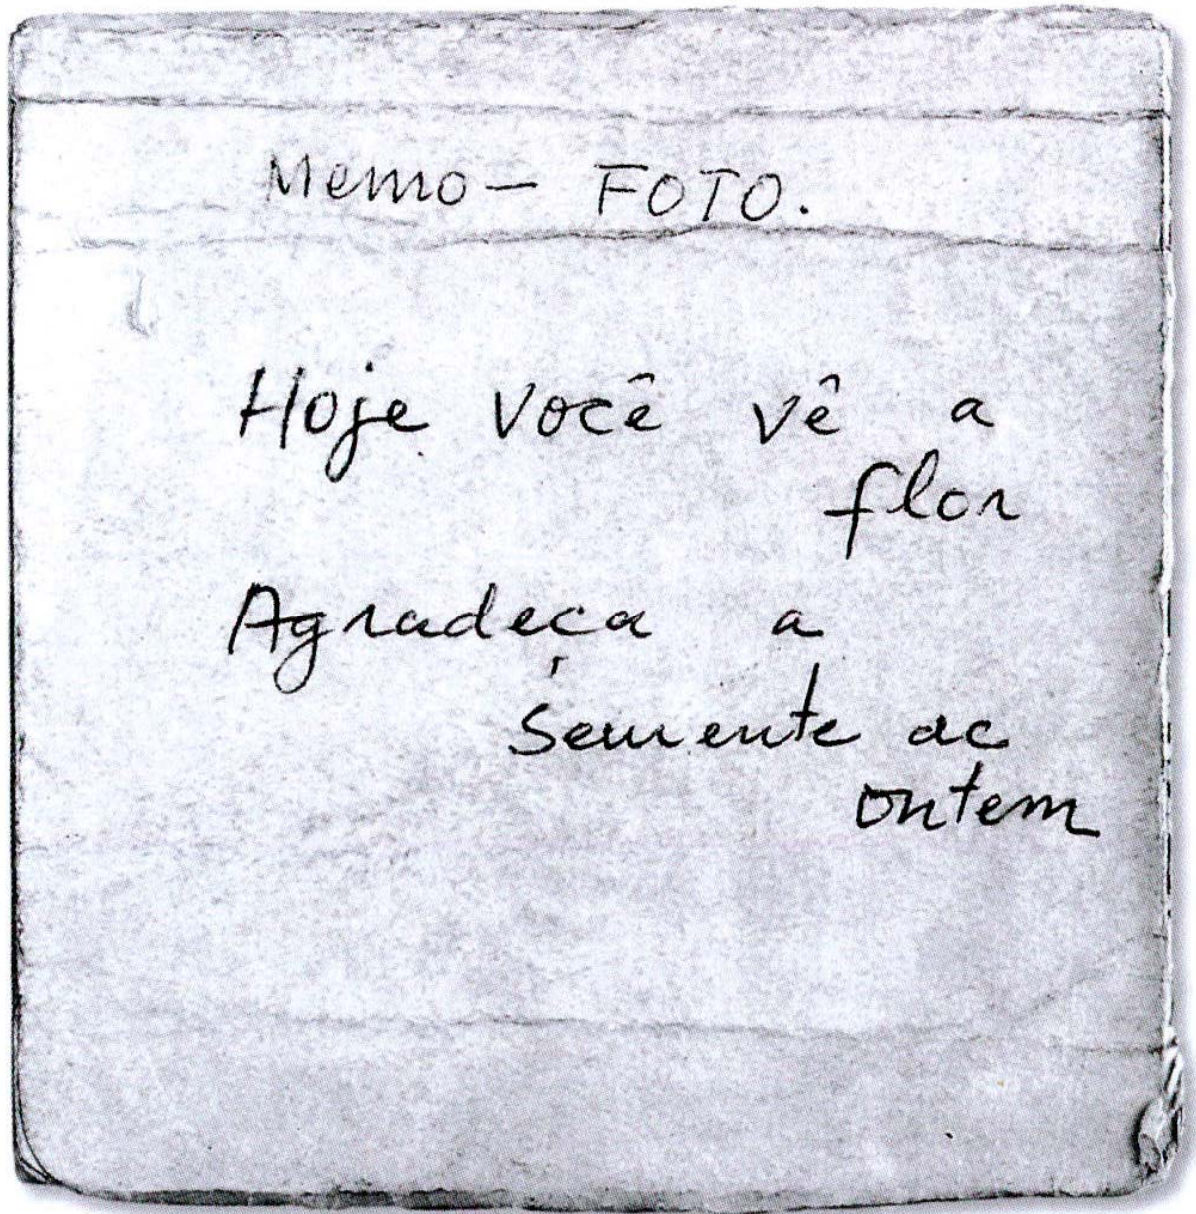 Memo - FOTO.
Hoje você vê a
flor
Agradeça a
semente de
ontem